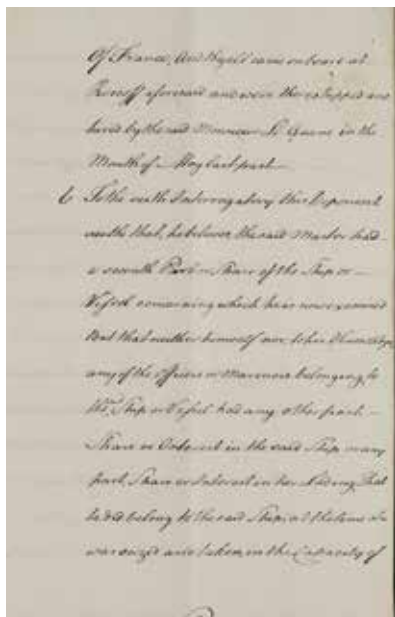 Of France, And they all came onboard at
Roscoff aforesaid and were there shipped and
hired by the said Monsieur Le Quene in the
Month of May last past
6 To the sixth Interrogatory this Deponent
saith that, he believes the said Master had
a seventh Part or Share of the Ship or
Vessel concerning which he is now examined
But that neither himself nor to his Knowledge
any of the Officers or Mariners belonging to
the sd. Ship or Vessel had any other part
Share or Interest in the said Ship or any
part, Share or Interest in her Lading, That
he did belong to the said Ship at the time she
was seized and taken, in the Capacity of